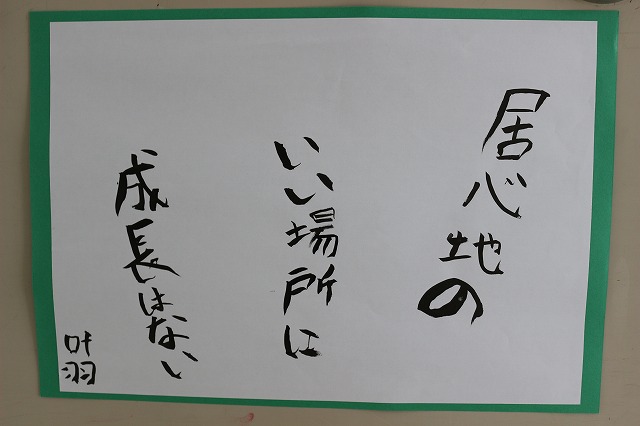 居心地の
いい場所に
成長はない
叶羽